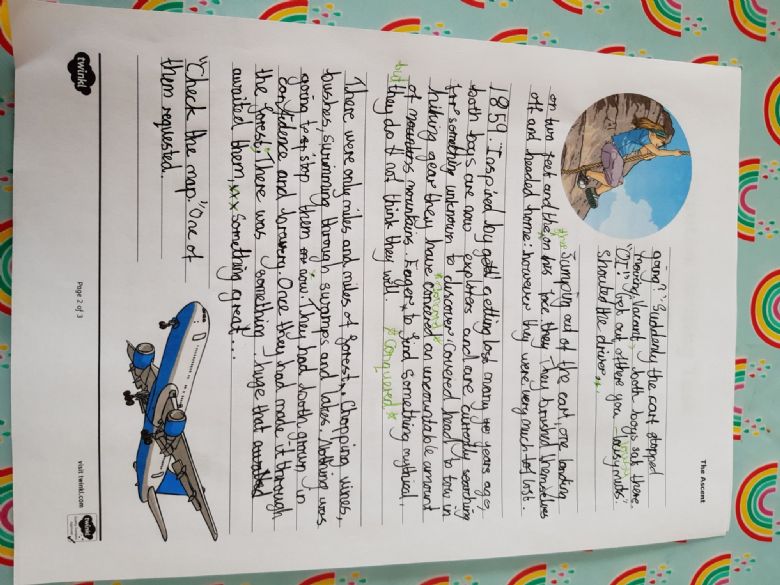 The Ascent
going?" Suddenly the cart stopped
moving, Vacant, both boys sat there.
"OI! Get out of there you lousy nuts"
Shouted the driver.
Jumping out of the cart, one landing
on two feet and the on his they brushed themselves
off and headed home: however they were very much lost.
1859: Inspired by getting lost many years ago,
both boys are now explorers and are currently searching
for something unknown to discover. Covered head to tow in
hiking gear they have concered an uncountable amount
of mountains. Eager to find something mythical,
but they do not think they will.
*conquered*
There were only miles and miles of forest. Chopping vines,
bushes, swimming through swamps and lakes. Nothing was
going to stop them now. They had both grown in
confidence and bravery. Once they had made it through
the forest, There was something - huge that awaited
awaited them, something great...
"Check the map." One of
them requested.
twinkl
Page 2 of 3
visit twinkl.com
twinkl